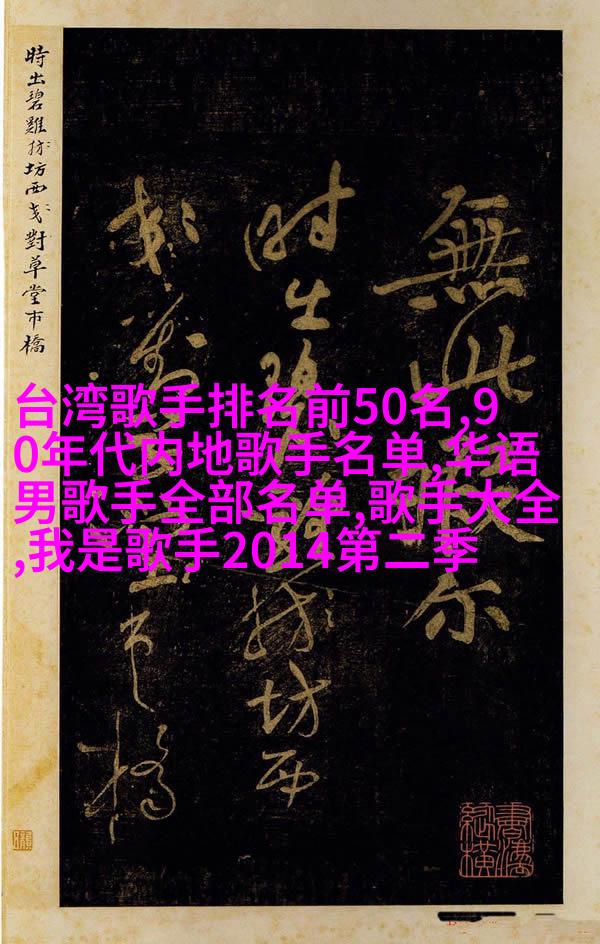 台湾歌手排名前50名,9
0年代内地歌手名单,华语
男歌手全部名单,歌手大全
,我是歌手2014第二季
無此尔
时出坊西
草堂市橋
時出碧雞坊西對草堂市橋